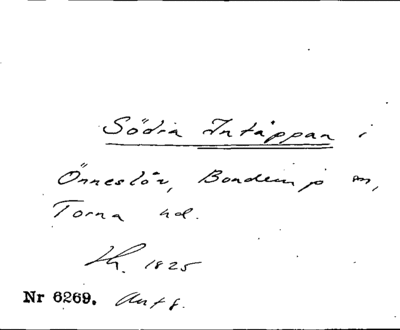 Södra Intäppan i
Önneslöv, Bonderup sn,
Torna hd.
Lh. 1825
Nr 6269. Aut 8.